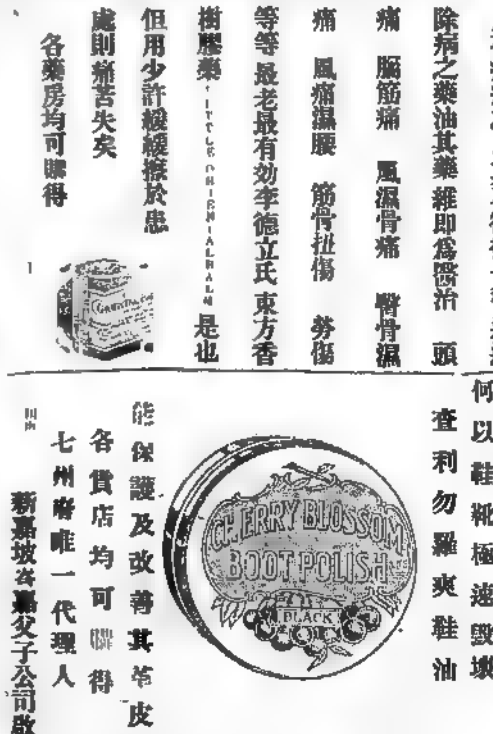 除病之藥油其藥 雖即爲醫治 頭
痛 腦筋痛 風濕骨痛 臀骨濕
痛 風痛濕腰 筋骨扭傷 勞傷
等等 最老最有効李德立氏 東方香
樹膠藥 LITTLE ORIENTAL BALM 是也
但用少許緩緩擦於患
處則痛苦失矣
各藥房均可購得
何以鞋靴極速毀壞
查利勿羅爽鞋油
CHERRY BLOSSOM
BOOT POLISH
BLACK
能保護及改善其革皮
各貨店均可購得
七州府唯一代理人
新嘉坡
父子公司啟